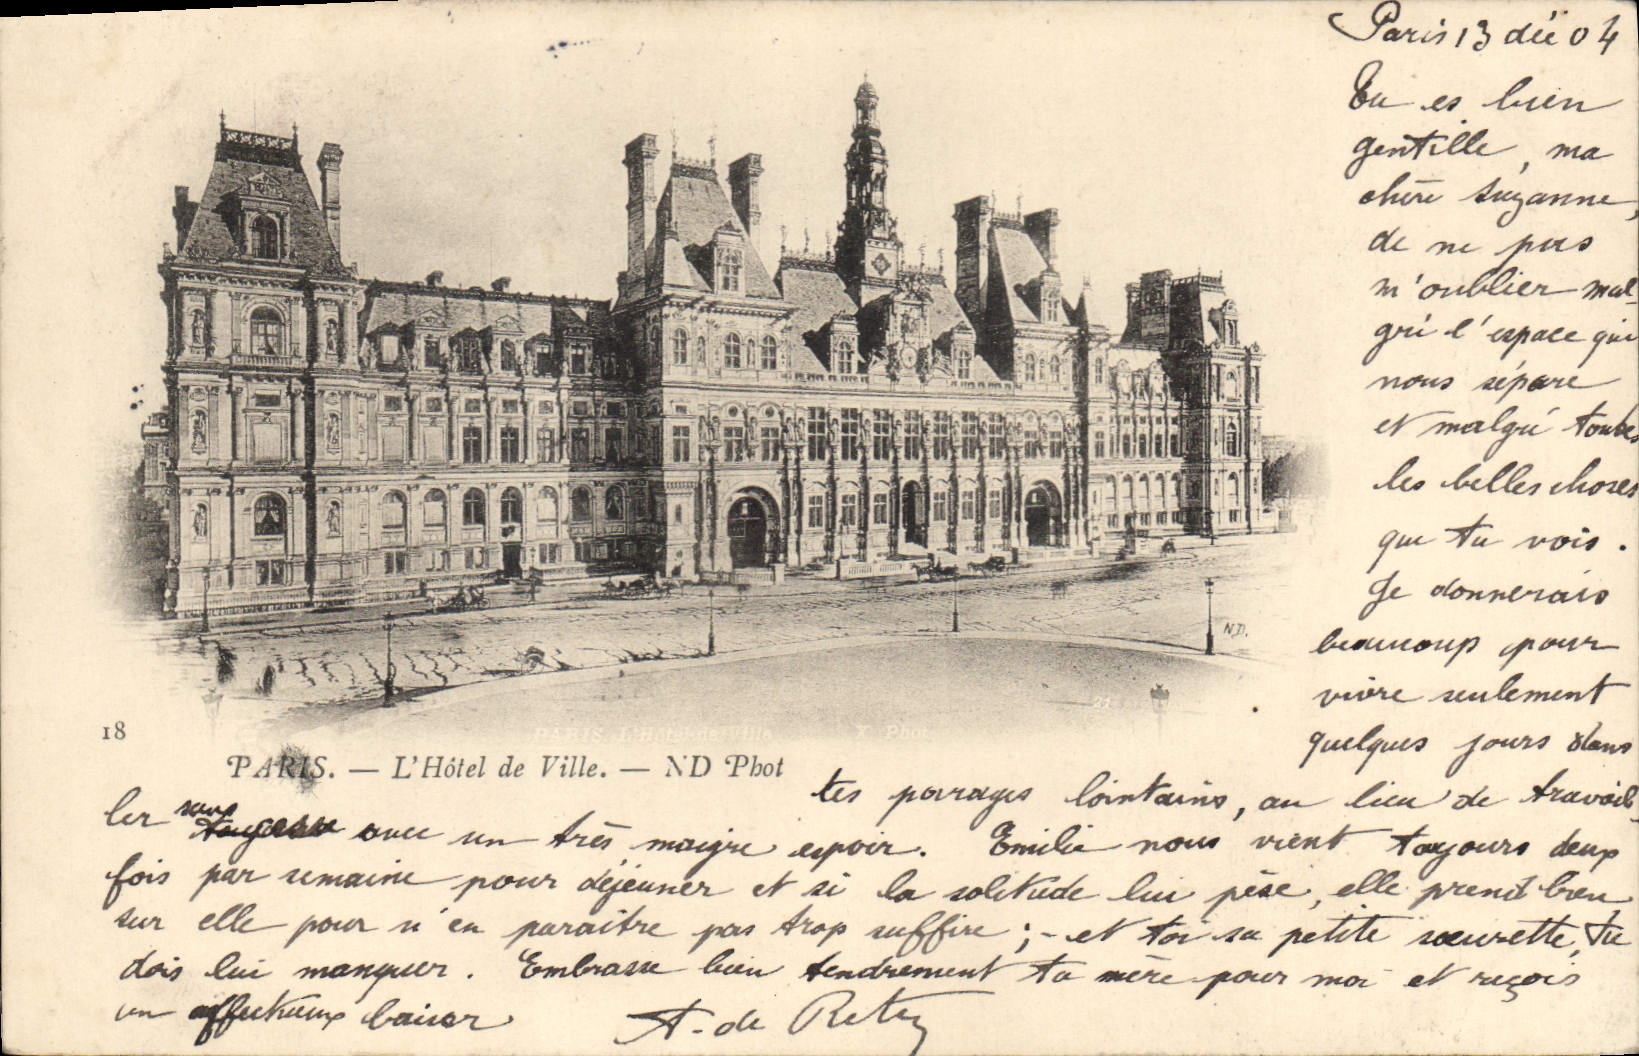 Paris 13 déc 04
Tu es bien
gentille, ma
chère Suzanne,
de ne pas
m'oublier mal-
gré l'espace qui
nous sépare
et malgré toutes
les belles choses
que tu vois.
Je donnerais
beaucoup pour
vivre seulement
quelques jours dans
N.D.
18
PARIS. — L'Hôtel de Ville. — ND Phot
tes parages lointains, au lieu de travail-
ler sans avec un très maigre espoir. Emilie nous vient toujours deux
fois par semaine pour déjeuner et si la solitude lui pèse, elle prend bien
sur elle pour n'en paraître pas trop souffrir ; - et toi sa petite soeurette, tu
dois lui manquer. Embrasse bien tendrement ta mère pour moi et reçois
un affectueux baiser
A. de